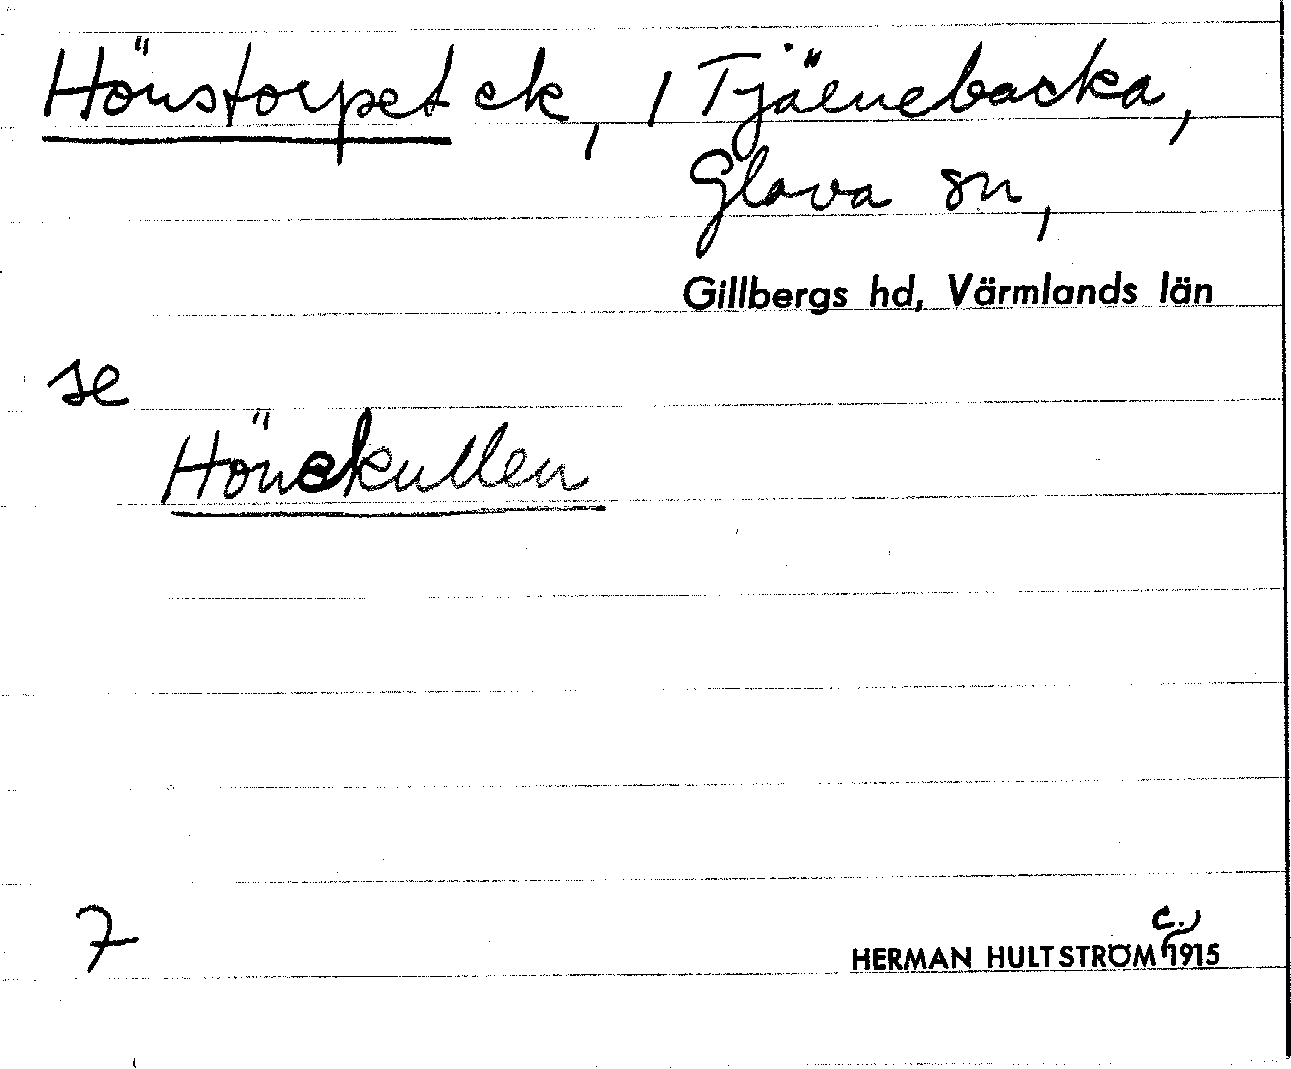 Hönstorpet ek, 1 Tjärnebacka,
Glava sn,
Gillbergs hd, Värmlands län
se
Hönekullen
7
c.,
HERMAN HULTSTRÖM 1915